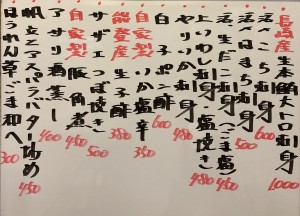 長崎産生本鮪大トロ刺身 1000
活〆こち刺身 600
活〆はまち刺身 500
活〆生だこ刺身(ごま塩) 450
上いわし刺身・塩焼き 480
やりいか刺身 480
白子ポン酢 600
自家製いか塩辛 350
能登産生子酢 380
サザエつぼ焼き 500
自家製豚角煮 450
アサリ酒蒸し 400
帆立アスパラバター炒め 450
ほうれん草ごま和へ 300